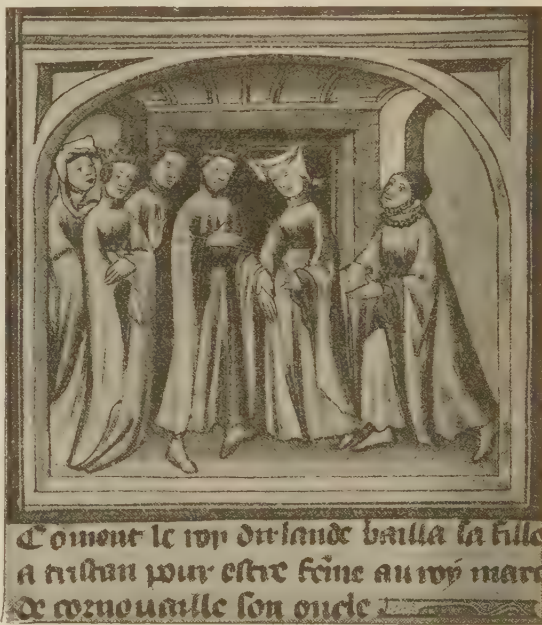 Coment le roy dirlande bailla sa fille
a tristan pour estre feme au roy marc
de cornouaille son oncle.